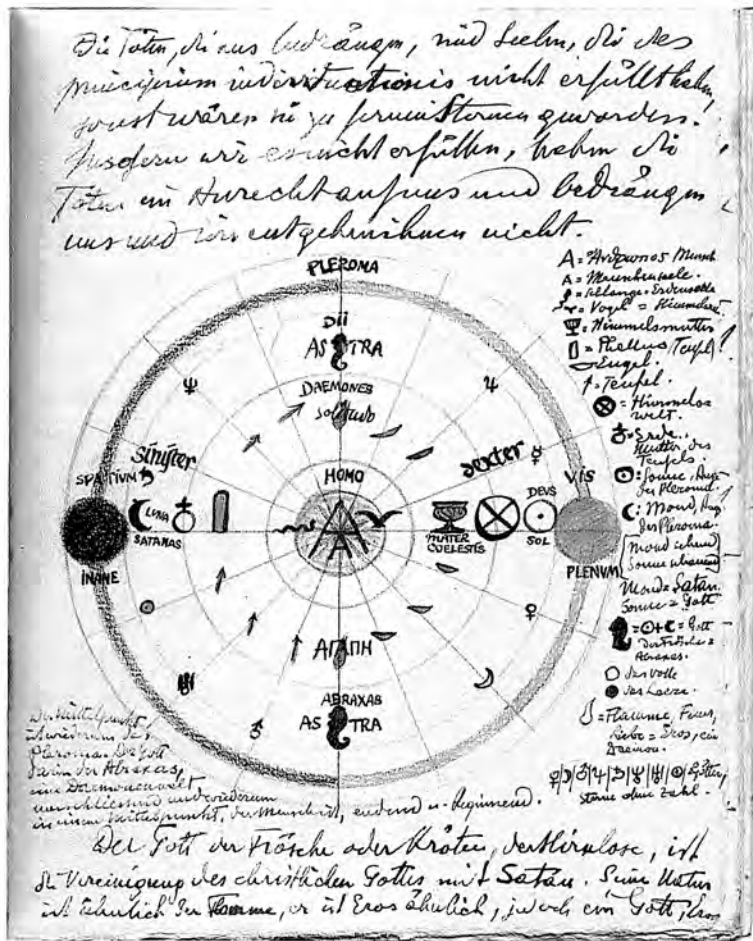 Die Toten, die uns bedrängen, sind Seelen, die das
principium individuationis nicht erfüllt haben,
sonst wären sie zu fernen Sternen geworden.
Insofern wir es nicht erfüllen, haben die
Toten ein Anrecht auf uns und bedrängen
uns und wir entgehen ihnen nicht.
PLEROMA
DII
ASTRA
DAEMONES
solitudo
sinister
dexter
HOMO
SPATIUM
VIS
LUNA
SATANAS
A
A
MATER
COELESTIS
DEUS
SOL
INANE
PLENUM
ΑΓΑΠΗ
ABRAXAS
ASTRA
A = Ἄνθρωπος Mensch
A = Menschenseele.
= Schlange = Erdenseele
= Vogel = Himmelsseele
= Himmelsmutter
= Phallus (Teufel)
= Engel.
↑ = Teufel.
⊗ = Himmels=
welt.
♁ = Erde.
Mutter des
Teufels.
☉ = Sonne, Auge
des Pleroma.
☾ = Mond, Aug
des Pleroma.
Mond
Sonne
Mond = Satan
Sonne = Gott
= ☉ + ☾ = Gott
der Frösche =
Abraxas.
○ das Volle
● das Leere.
= Flamme, Feuer,
Liebe = Eros, ein
Daemon.
Götter,
Sterne ohne Zahl.
Der Mittelpunkt
ist wiederum das
Pleroma. Der Gott
darin der Abraxas,
eine Daemonenwelt
umschliesst und wiederum
in einem Mittelpunkt, der Menschheit, endend u. beginnend.
Der Gott der Frösche oder Kröten, der Hirnlose, ist
die Vereinigung des christlichen Gottes mit Satan. Seine Natur
ist ähnlich der Flamme, er ist Eros ähnlich, jedoch ein Gott, Eros